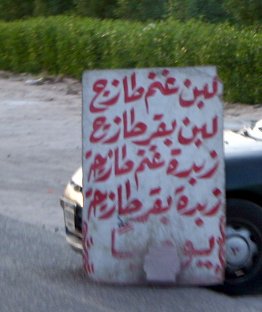 لبن غنم طازج
لبن بقر طازج
زبدة غنم طازجة
زبدة بقر طازجة
يومياً